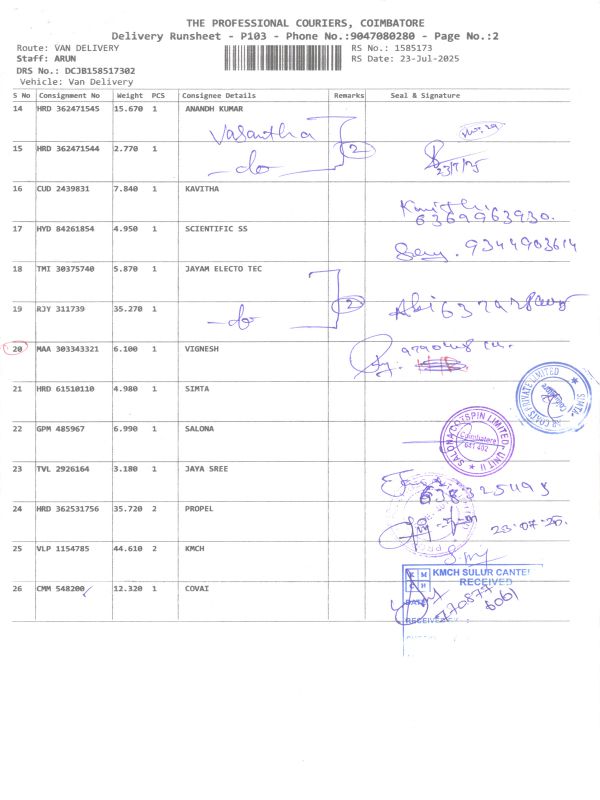 THE PROFESSIONAL COURIERS, COIMBATORE
Delivery Runsheet - P103 - Phone No.:9047080280 - Page No.:2
Route: VAN DELIVERY
RS No.: 1585173
Staff: ARUN
RS Date: 23-Jul-2025
DRS No.: DCJB158517302
Vehicle: Van Delivery
S No Consignment No Weight PCS Consignee Details Remarks Seal & Signature
14 HRD 362471545 15.670 1 ANANDH KUMAR
Vasantha
15 HRD 362471544 2.770 1
2
-do-
23/7/25
16 CUD 2439831 7.840 1 KAVITHA
6369963930.
17 HYD 84261854 4.950 1 SCIENTIFIC SS
9344903614
18 TMI 30375740 5.870 1 JAYAM ELECTO TEC
19 RJY 311739 35.270 1
2
-do-
20 MAA 303343321 6.100 1 VIGNESH
21 HRD 61510110 4.980 1 SIMTA
22 GPM 485967 6.990 1 SALONA
SALONA COTSPIN LIMITED, UNIT II
Coimbatore
641 402
23 TVL 2926164 3.180 1 JAYA SREE
24 HRD 362531756 35.720 2 PROPEL
23-07-25.
25 VLP 1154785 44.610 2 KMCH
KMCH SULUR CANTE
RECEIVED
26 CMM 548200 12.320 1 COVAI